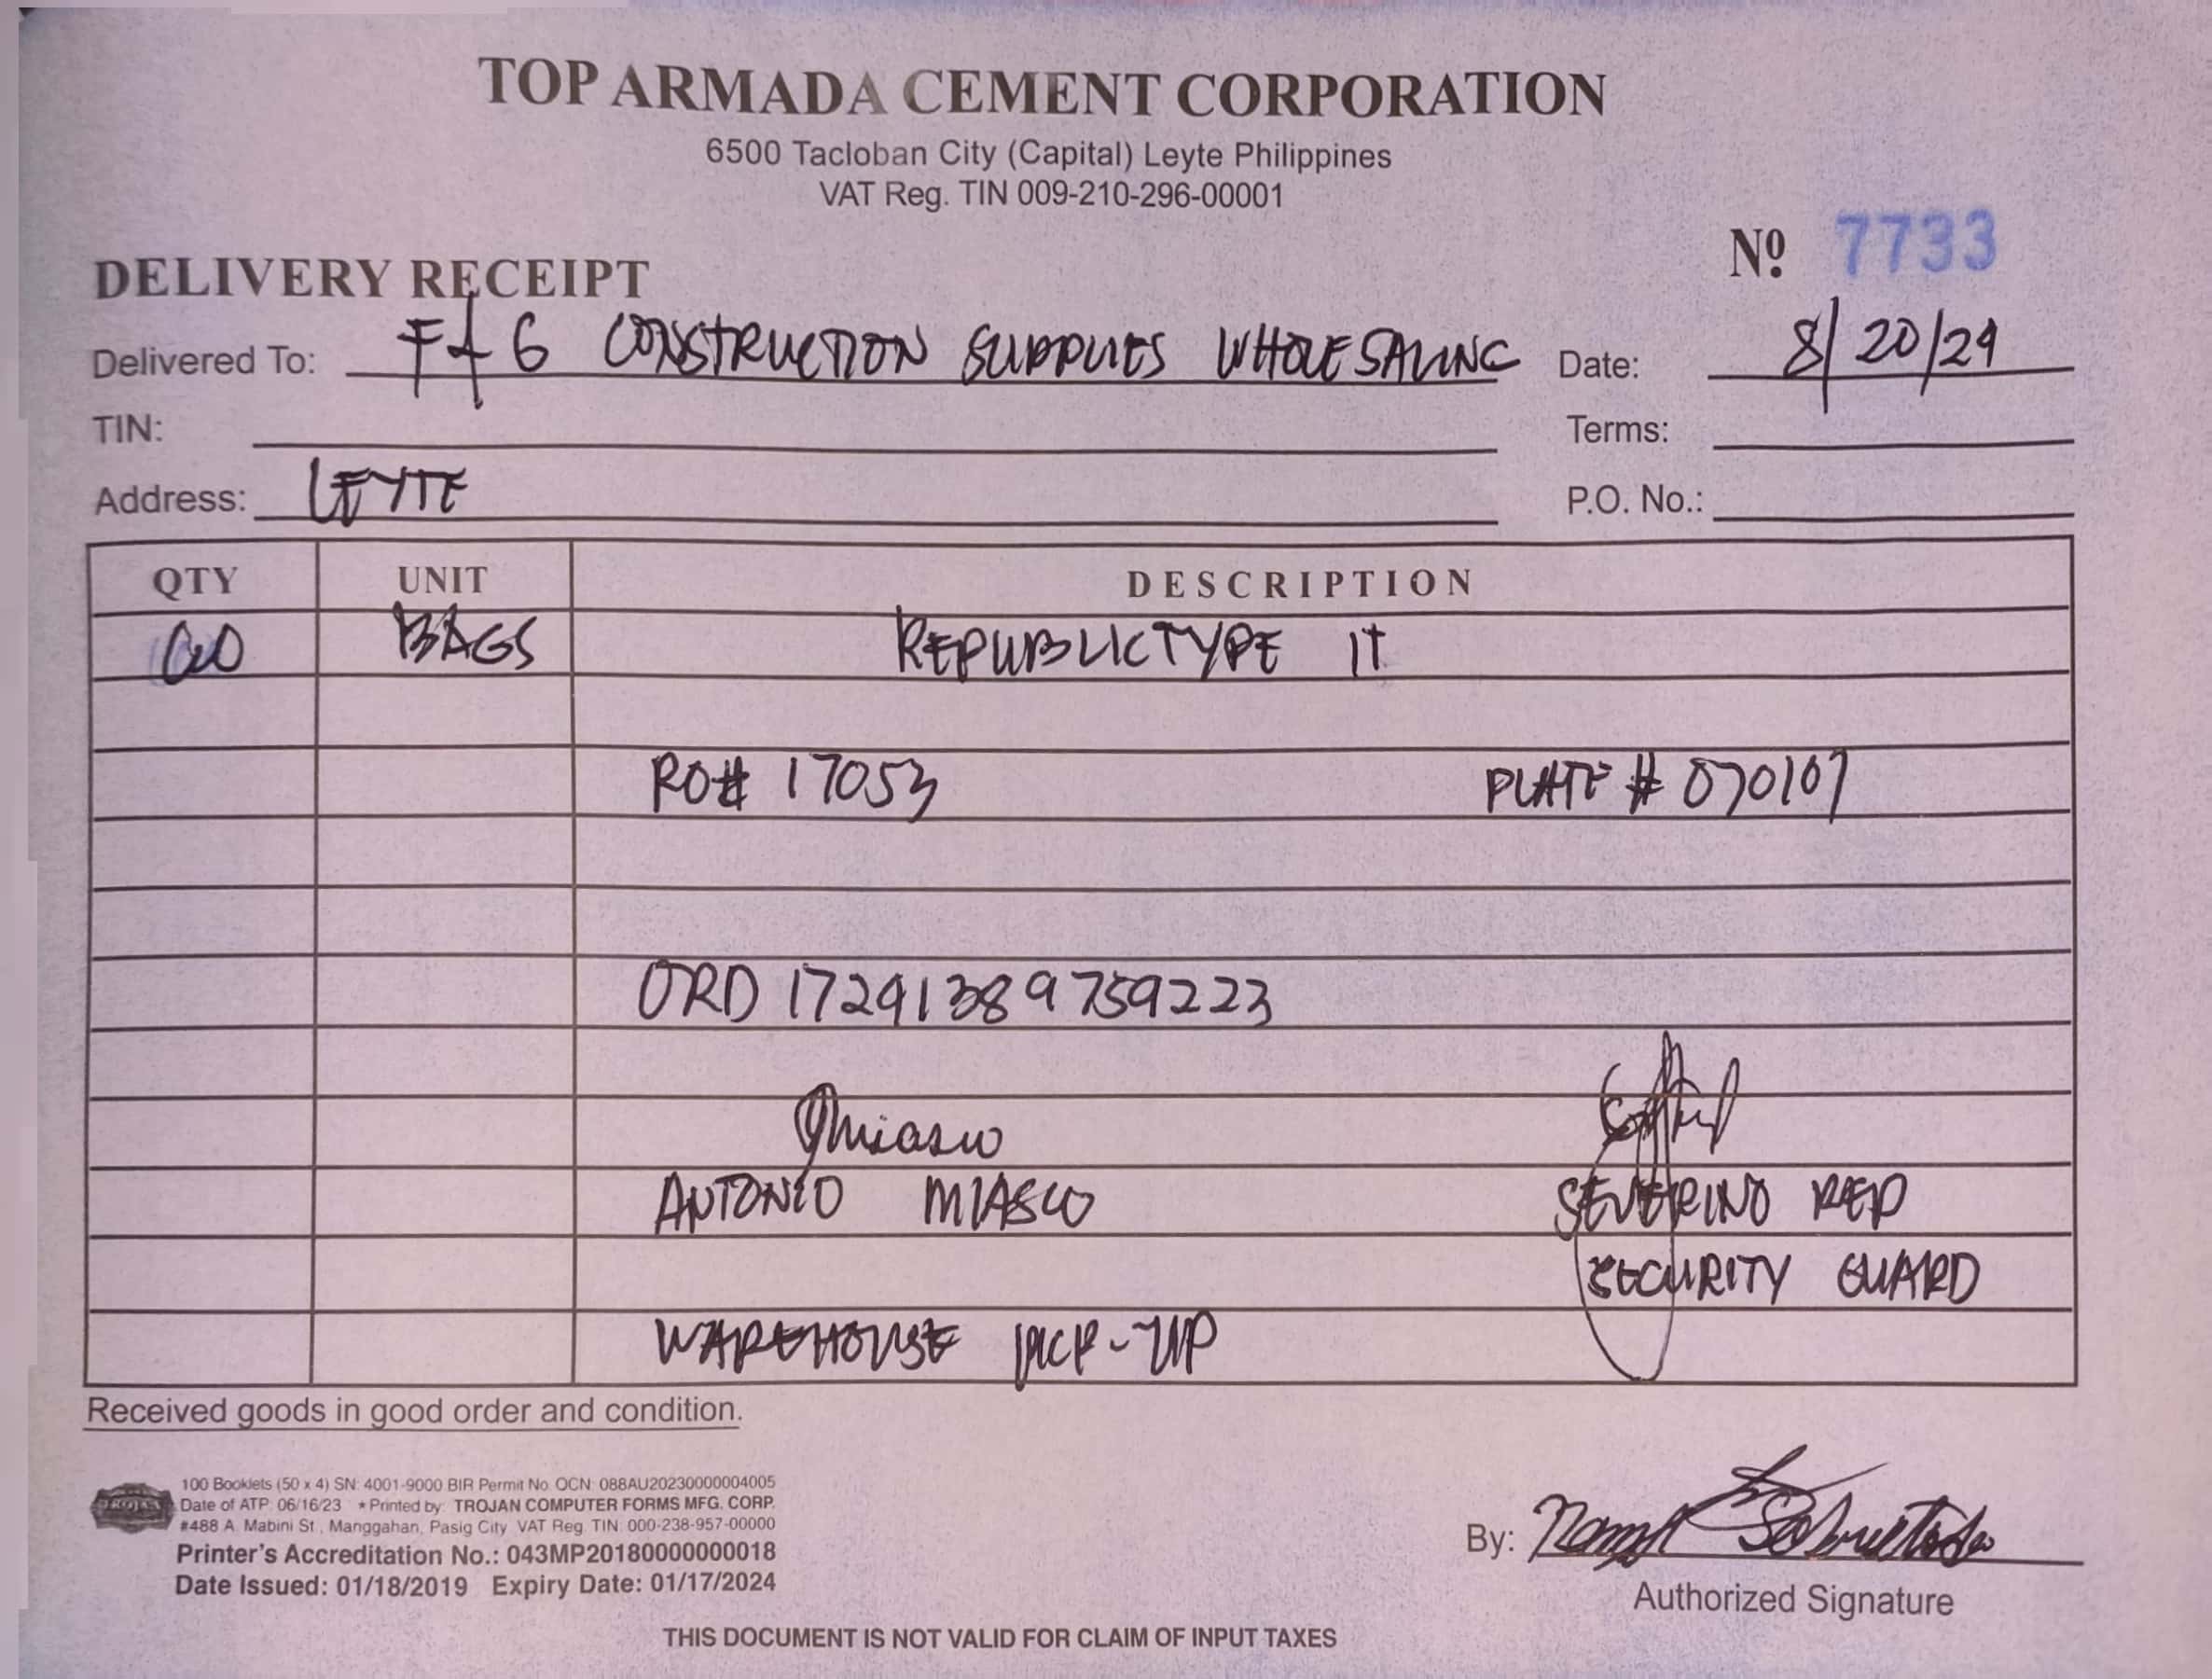 TOP ARMADA CEMENT CORPORATION
6500 Tacloban City (Capital) Leyte Philippines
VAT Reg. TIN 009-210-296-00001
Nº 7733
DELIVERY RECEIPT
Delivered To: F & G CONSTRUCTION SUPPLIES WHOLESALING Date: 8/20/24
TIN: Terms:
Address: LEYTE P.O. No.:
QTY UNIT DESCRIPTION
BAGS REPUBLIC TYPE 1T
RO# 17053 PLATE # 070107
ORD 17241389759223
ANTONIO MIASCO SEVERINO RED
SECURITY GUARD
WAREHOUSE PICK-UP
Received goods in good order and condition.
100 Booklets (50 x 4) SN: 4001-9000 BIR Permit No. OCN: 088AU20230000004005
TROJAN Date of ATP: 06/16/23 * Printed by: TROJAN COMPUTER FORMS MFG. CORP.
#488 A. Mabini St., Manggahan, Pasig City VAT Reg. TIN: 000-238-957-00000
Printer's Accreditation No.: 043MP20180000000018
Date Issued: 01/18/2019 Expiry Date: 01/17/2024
By:
Authorized Signature
THIS DOCUMENT IS NOT VALID FOR CLAIM OF INPUT TAXES